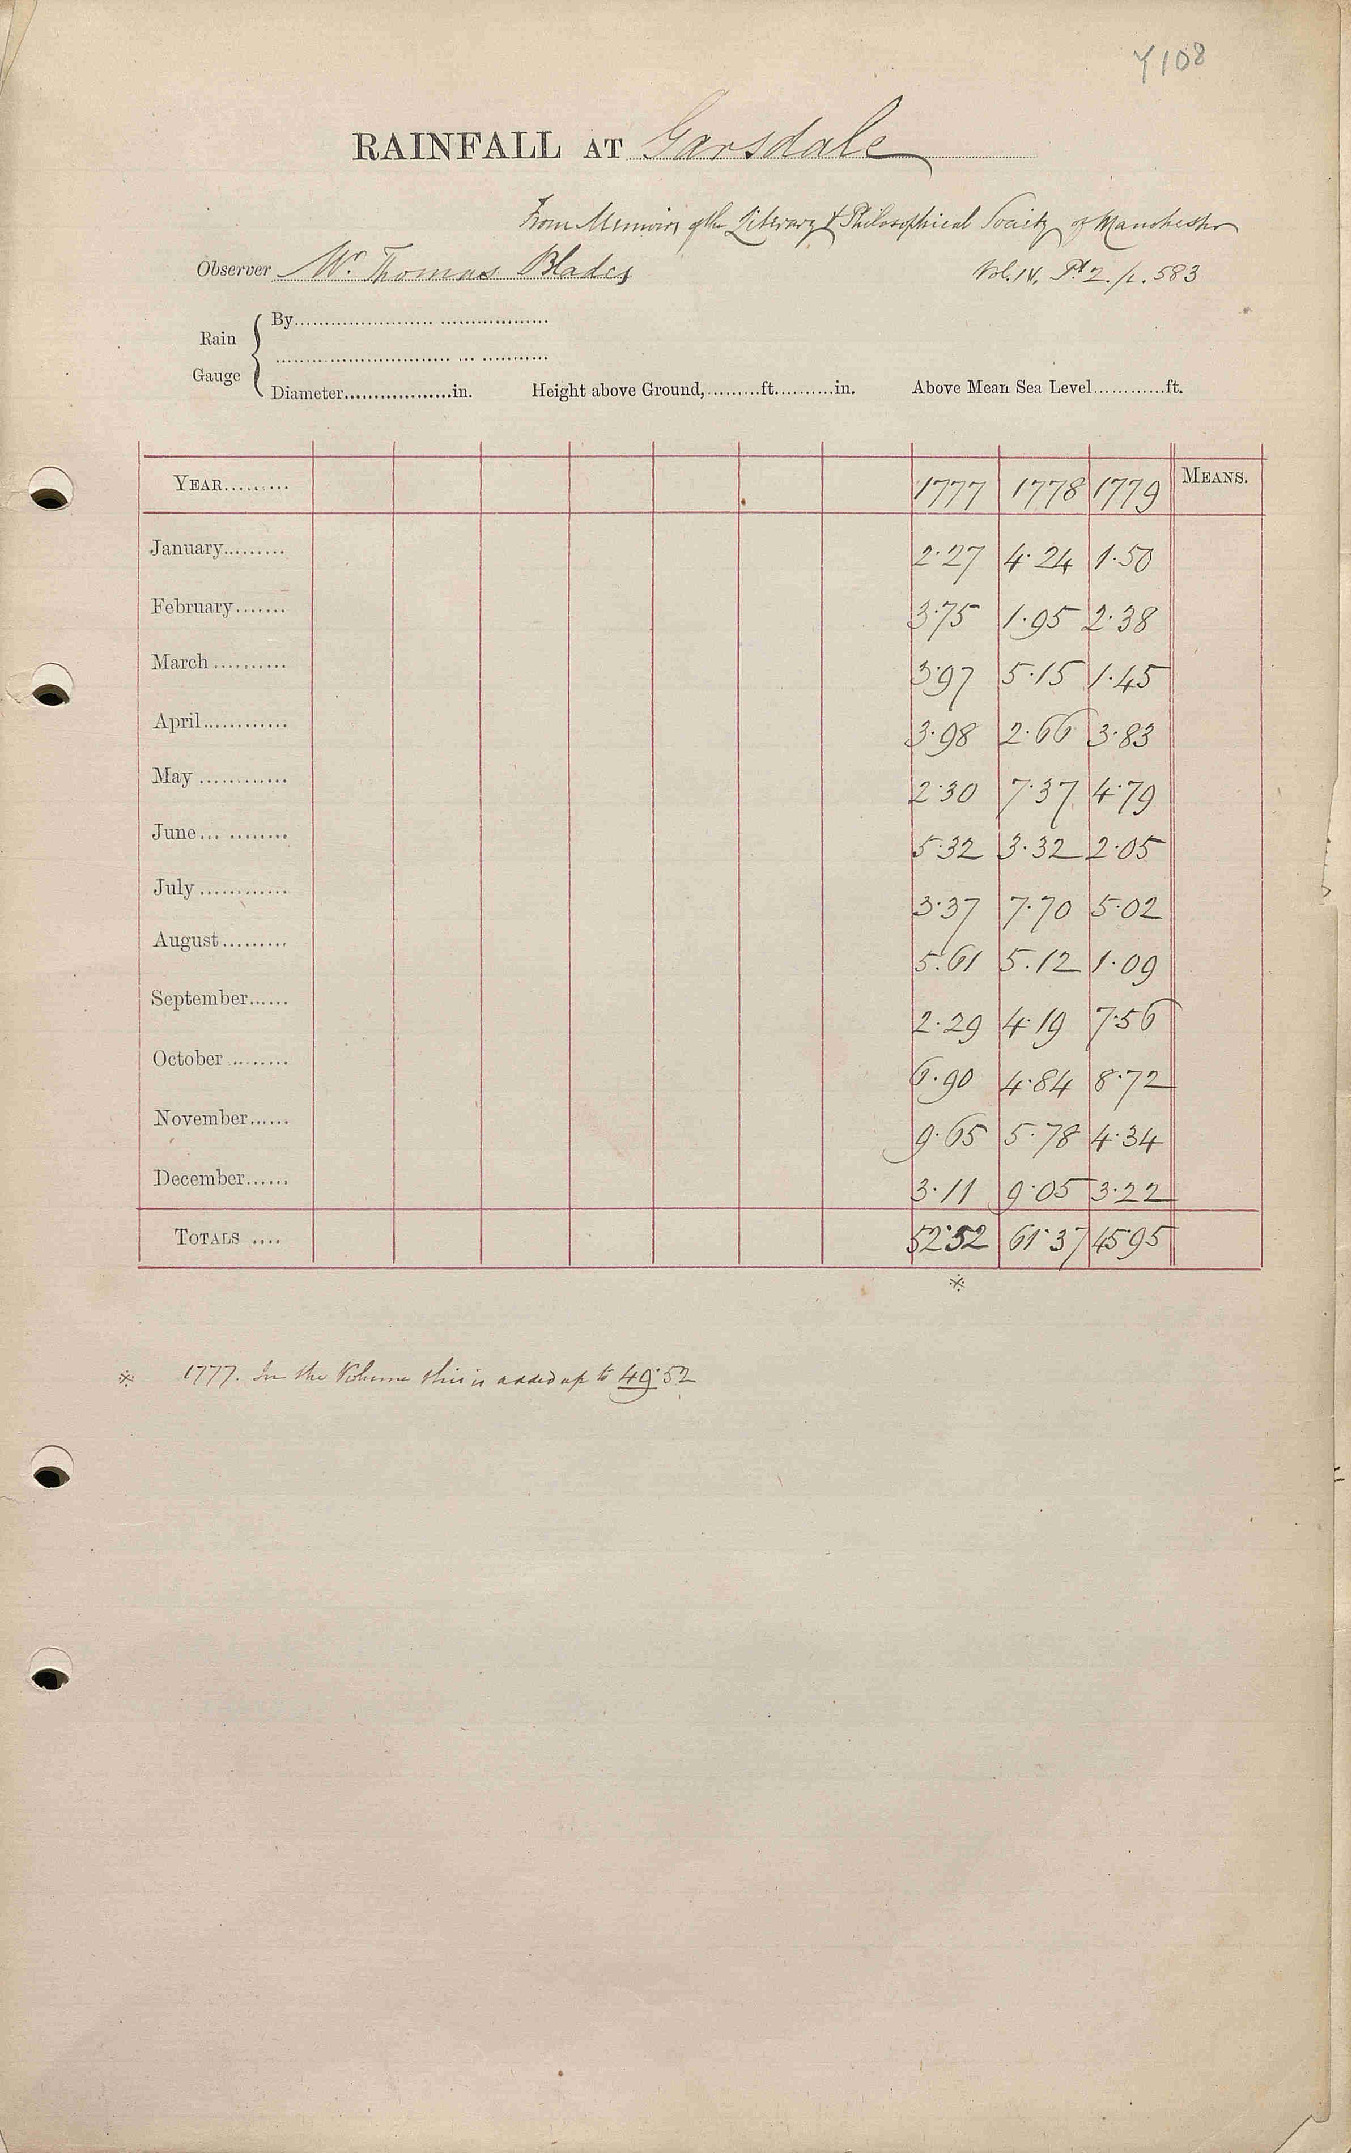 Y108
RAINFALL AT Garsdale
From Memoirs of the Literary & Philosophical Society of Manchester
Observer Mr. Thomas Blades Vol. IV, Pt 2. p. 583
Rain Gauge { By
Diameter in. Height above Ground, ft. in. Above Mean Sea Level ft.
YEAR 1777 1778 1779 MEANS.
January 2.27 4.24 1.50
February 3.75 1.95 2.38
March 3.97 5.15 1.45
April 3.98 2.66 3.83
May 2.30 7.37 4.79
June 5.32 3.32 2.05
July 3.37 7.70 5.02
August 5.61 5.12 1.09
September 2.29 4.19 7.56
October 6.90 4.84 8.72
November 9.65 5.78 4.34
December 3.11 9.05 3.22
TOTALS 52.52 61.37 45.95
※
※ 1777. In the Volume this is added up to 49.52